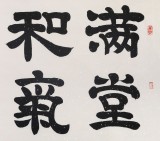 满堂
和氣